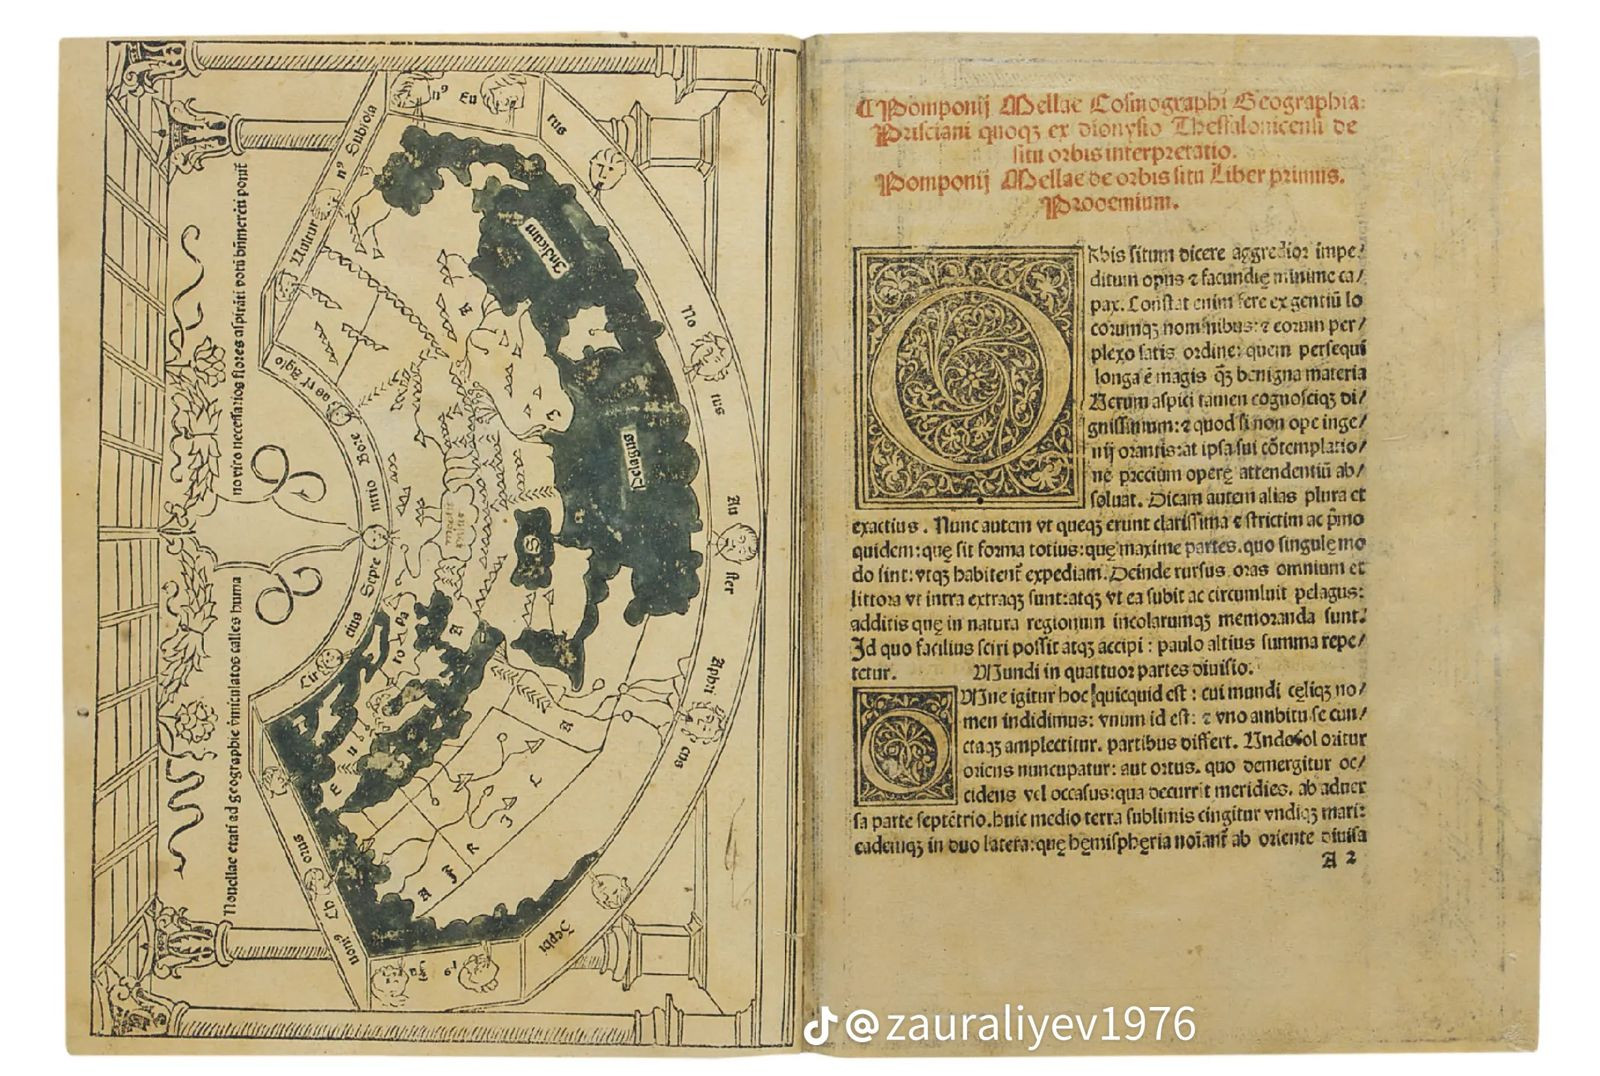 Nouellae etati ad geographie vmiculatos calles huma
no viro necessarios flores aspirati votū bn̄merēti ponit
nꝰ Subsola
Vultur
nꝰ Eu
rus
No
tus
Au
ster
Aphri
cus
Zephi
Septe
ntrio
Bore
Cir
cius
Indicum
Pelagus
A F R I C A
E u
¶Pomponij Mellae Cosmographi Geographia:
Prisciani quoqꝫ ex dionysio Thessalonicensi de
situ orbis interpretatio.
Pomponij Mellae de orbis situ Liber primus.
Prooemium.
ORbis situm dicere aggredior impe/
ditum opus ⁊ facundię minime ca/
pax. Constat enim fere ex gentiū lo
corumqꝫ nominibus: ⁊ eorum per/
plexo satis ordine: quem persequi
longa ē magis q̄ꝫ benigna materia
Verum aspici tamen cognosciqꝫ di/
gnissimum: ⁊ quod si non ope inge/
nij orantis: at ipsa sui cōtemplatio/
ne precium operę attendentiū ab/
soluat. Dicam autem alias plura et
exactius. Nunc autem vt queqꝫ erunt clarissima ⁊ strictim ac p̄mo
quidem: quę sit forma totius: quę maxime partes. quo singulę mo
do sint: vtqꝫ habitent̄ expediam. Deinde rursus oras omnium et
littora vt intra extraqꝫ sunt: atqꝫ vt ea subit ac circumluit pelagus:
additis quę in natura regionum incolarumqꝫ memoranda sunt.
Id quo facilius sciri possit atqꝫ accipi: paulo altius summa repe/
tetur. Mundi in quattuor partes diuisio.
OMne igitur hoc quicquid est: cui mundi cęliqꝫ no/
men indidimus: vnum id est: ⁊ vno ambitu se cun/
ctaqꝫ amplectitur. partibus differt. Vnde sol oritur
oriens nuncupatur: aut ortus. quo demergitur oc/
cidens vel occasus: qua decurrit meridies. ab aduer
sa parte septētrio. huic medio terra sublimis cingitur vndiqꝫ mari:
eademqꝫ in duo latera: quę hęmisphęria noīant̄ ab oriente diuisa
A 2
@zauraliyev1976